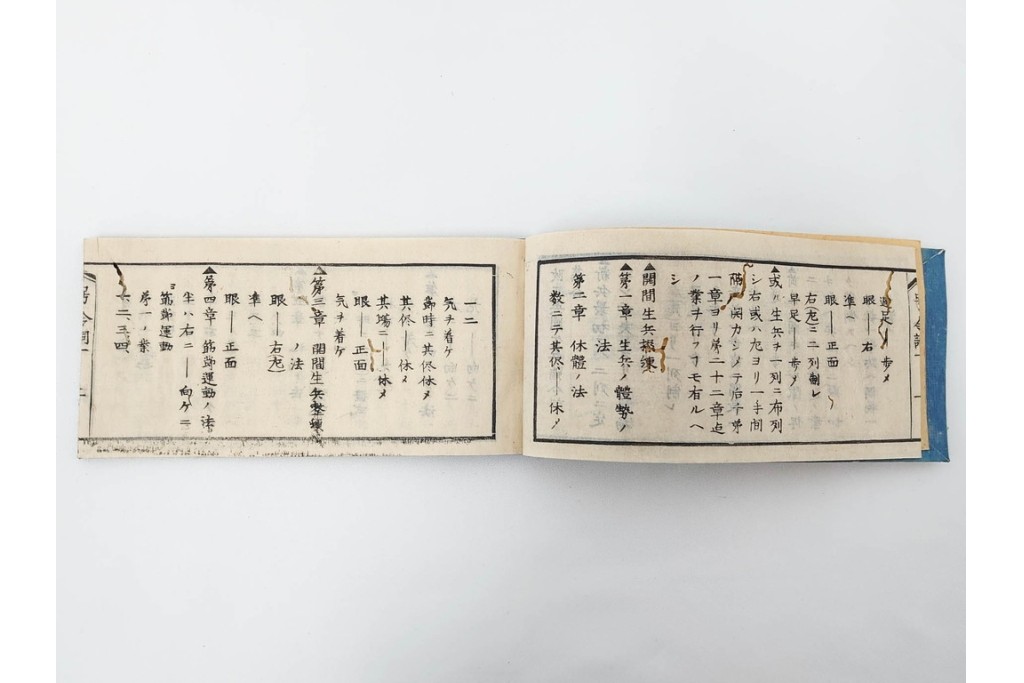 歩メ
眼──右
準ヘ
眼──正面
早足──歩メ
右(左)ニ二列制レ
▲或ハ生兵ヲ一列ニ布列
シ右或ハ左ヨリ一手間
隔ヲ開カシメテ后チ第
一章ヨリ第二十二章迠
ノ業ヲ行フヿモ有ルヘ
シ
▲開間生兵操練
▲第一章 生兵ノ體勢ノ
法
第二章 休體ノ法
教ニテ其侭──休メ
一二
気ヲ着ケ
其侭──休メ
其場ニ──休メ
眼──正面
気ヲ着ケ
▲第三章 開間生兵整頓
ノ法
眼──右(左)
準ヘ
眼──正面
▲第四章 節節運動ノ法
半ハ右ニ──向ケニ
節節運動
第一ノ業
一、二、三、四